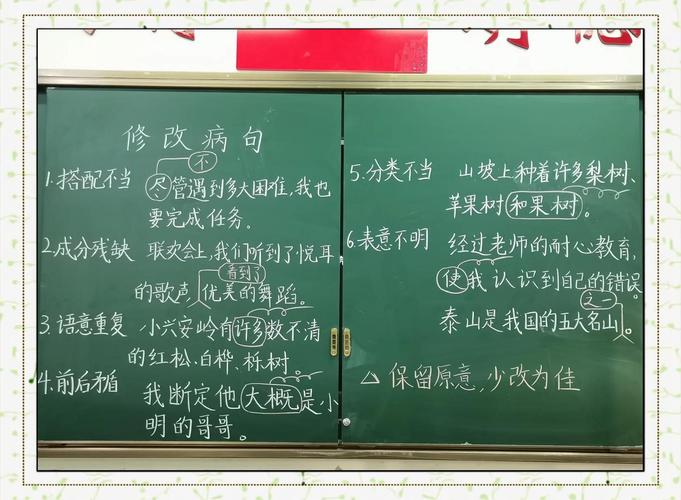 修改病句
1.搭配不当
不
尽管遇到多大困难,我也
要完成任务。
2.成分残缺 联欢会上,我们听到了悦耳
看到了
的歌声优美的舞蹈。
3.语意重复 小兴安岭有许多数不清
的红松、白桦、栎树。
4.前后矛盾
我断定他大概是小
明的哥哥。
5.分类不当 山坡上种着许多梨树、
苹果树和果树。
6.表意不明 经过老师的耐心教育,
使我认识到自己的错误。
之一
泰山是我国的五大名山。
△ 保留原意,少改为佳